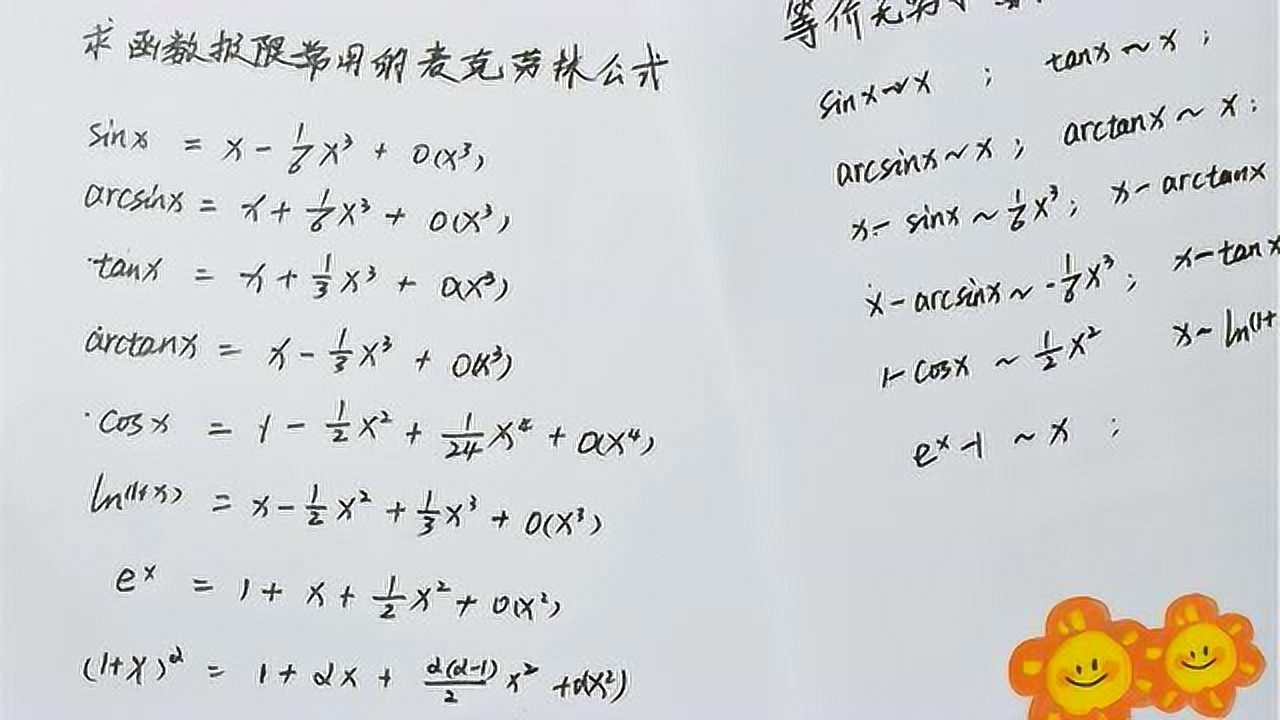 求函数极限常用的麦克劳林公式
sinx = x - 1/6 x³ + o(x³)
arcsinx = x + 1/6 x³ + o(x³)
tanx = x + 1/3 x³ + o(x³)
arctanx = x - 1/3 x³ + o(x³)
cosx = 1 - 1/2 x² + 1/24 x⁴ + o(x⁴)
ln(1+x) = x - 1/2 x² + 1/3 x³ + o(x³)
eˣ = 1 + x + 1/2 x² + o(x²)
(1+x)^α = 1 + αx + α(α-1)/2 x² + o(x²)
等价无穷
sinx ~ x ; tanx ~ x ;
arcsinx ~ x ; arctanx ~ x ;
x - sinx ~ 1/6 x³ ; x - arctanx
x - arcsinx ~ -1/6 x³ ; x - tanx
1 - cosx ~ 1/2 x² x - ln(1+
eˣ - 1 ~ x ;